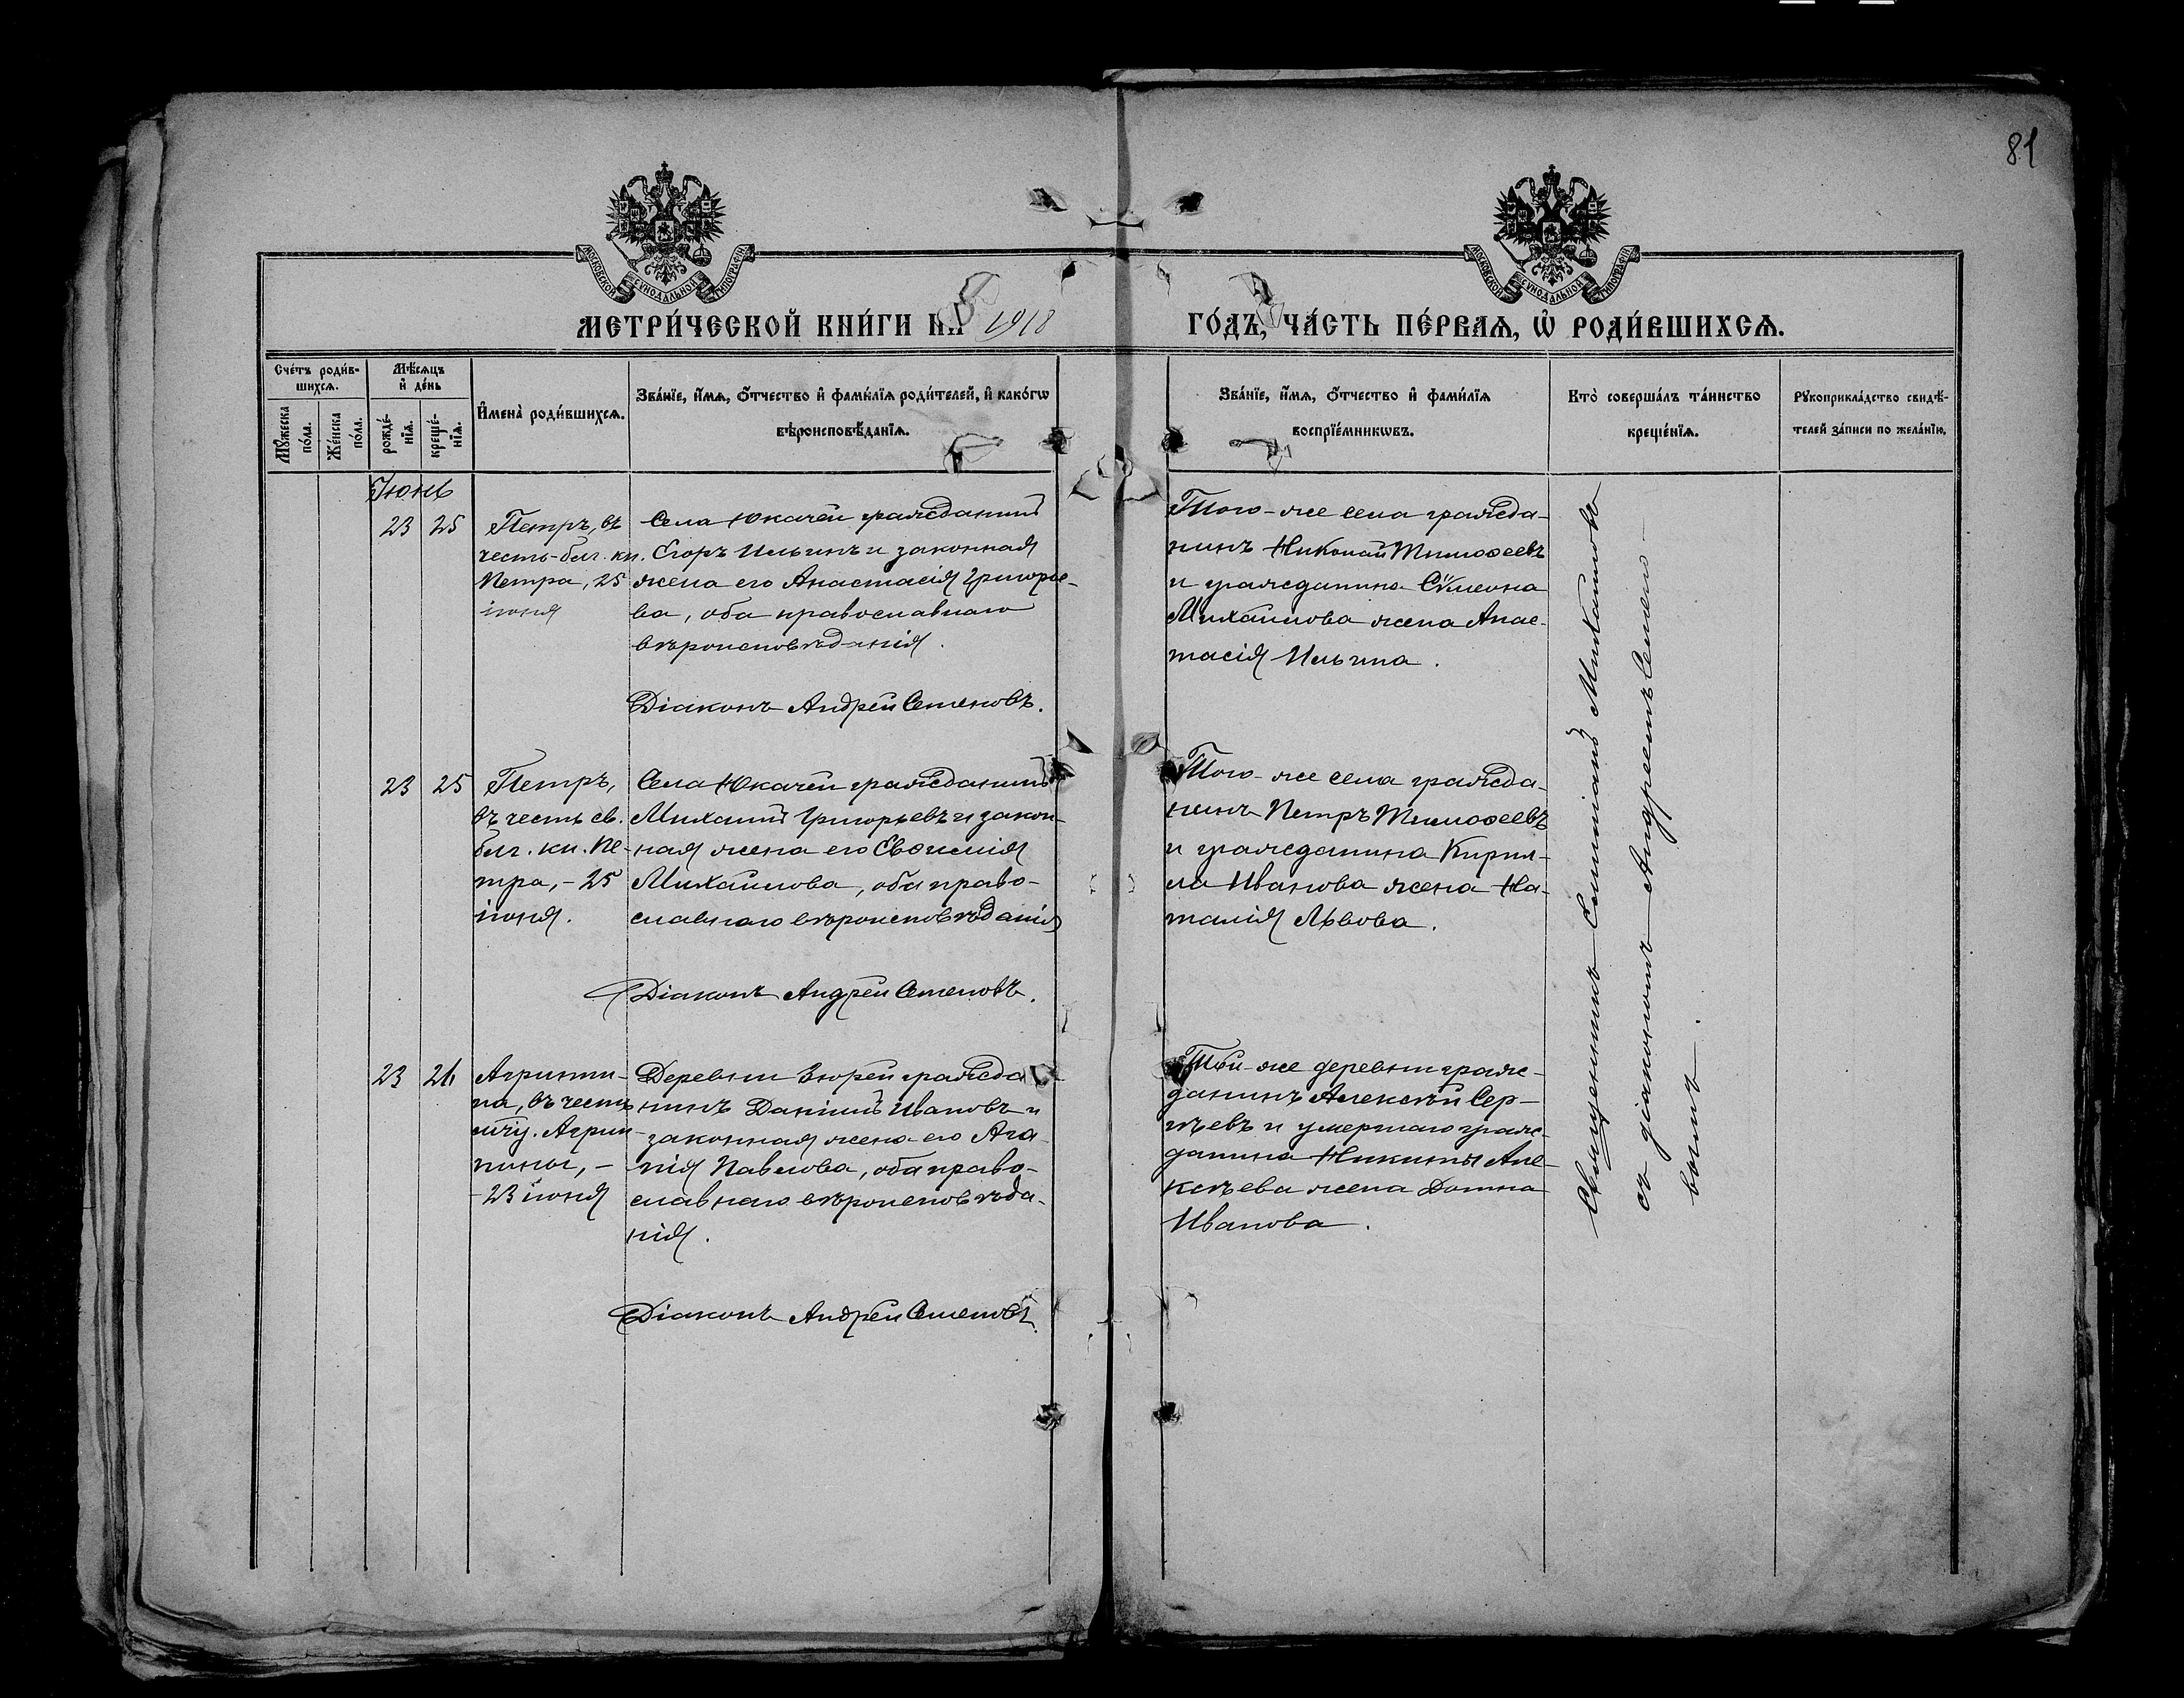 81
МОСКОВСКОЙ СУНОДАЛЬНОЙ ТИПОГРАФІИ
МОСКОВСКОЙ СУНОДАЛЬНОЙ ТИПОГРАФІИ
МЕТРИ́ЧЕСКОЙ КНИ́ГИ НА 1918 ГО́ДЪ, ЧА́СТЬ ПЕ́РВАЯ, Ѡ РОДИ́ВШИХСЯ.
Сче́тъ роди́в-
шихся.
Мꙋжеска
по́ла.
Же́нска
по́ла.
Мѣ́сяцъ
и де́нь
рожде́-
нїя.
креще́-
нїя.
Имена̀ роди́вшихся.
Зва́нїе, и́мя, ѻ́тчество и фами́лїя роди́телей, и како́гѡ
вѣроисповѣ́данїя.
Зва́нїе, и́мя, ѻ́тчество и фами́лїя
воспрїе́мникѡвъ.
Кто̀ соверша́лъ та́инство
креще́нїя.
Рꙋкоприкла́дство свидѣ́-
телей за́писи по жела́нїю.
Іюнь
23 25
Петръ, въ
честь бл. кн.
Петра, 25
іюня
Села Юкачей гражданинъ
Егоръ Ильинъ и законная
жена его Анастасія Григорье-
ва, оба православнаго
вѣроисповѣданія.
Діаконъ Андрей Семеновъ.
Того-же села гражда-
нинъ Николай Тимоѳеевъ
и гражданина Сѵмеона
Михайлова жена Анас-
тасія Ильина.
23 25
Петръ,
въ честь св.
благ. кн. Пе-
тра, - 25
іюня.
Села Юкачей гражданинъ
Михаилъ Григорьевъ и закон-
ная жена его Евѳимія
Михайлова, оба право-
славнаго вѣроисповѣданія
Діаконъ Андрей Семеновъ.
Того-же села гражда-
нинъ Петръ Тимоѳеевъ
и гражданина Кирил-
ла Иванова жена На-
талія Львова.
23 26
Агриппи-
на, въ честь
мчц. Агрип-
пины, -
- 23 іюня
Деревни Зюрей гражда-
нинъ Даніилъ Ивановъ и
законная жена его Ага-
пія Павлова, оба право-
славнаго вѣроисповѣда-
нія.
Діаконъ Андрей Семеновъ.
Той-же деревни граж-
данинъ Алексѣй Сер-
гѣевъ и умершаго граж-
данина Никиты Але-
ксѣева жена Домна
Иванова.
Священникъ Михайловъ
съ діакономъ Андреемъ Семено-
вымъ.